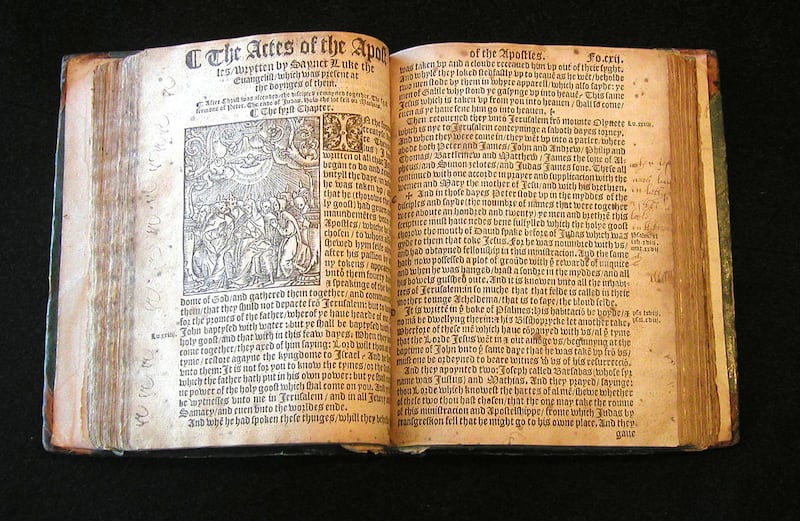 ¶ The Actes of the Apos
tles / wrytten by Saynct Luke the
Euangelist / which was present at
the doynges of them.
¶ After Christ was ascended, the disciples remayned together. The
sermone of Peter. The
¶ The fyrst Chapter.
written of all
began to do and
vntyll the day
he was taken up
that he
goost) had geuen
maundemētes
Apostles / which
chosen / to whom
shewed hym selfe
after his passion
ny tokens / appea
vnto them fourty
speakynge of the
dome of God / and gathered them together / and comm
them / that they shuld not departe frō Jerusalem: but to
for the promes of the father / wherof ye haue hearde of
Lu.xxiiii.
John baptysed with water: but ye shall be baptysed
holy goost / and that with in this feaw dayes. When they
come together / they axed of him saying: Lord wilt thou at
tyme / restore agayne the kyngdome to Israel? And he
vnto them: It is not for you to know the tymes / or the
which the father hath put in his own power: but ye shall
ue power of the holy goost which shal come on you. And ye
be wytnesses vnto me in Jerusalem / and in all Jewry
Samary / and euen vnto the worldes ende.
And whē he had spoken these thynges / whill they behelde
of the Apostles.
Fo.cxii.
was taken vp and a cloude receaued him vp out of their syght.
And whyle they loked stedfastly vp to heauē as he wēt / beholde
two men stode by them in whyte apparell / which also sayde: ye
men of Galile why stond ye gasyng vp into heauē? This same
Jesus which is taken vp from you into heauen / shall so come /
euen as ye haue sene him go into heauen.
Then returned they vnto Jerusalem frō mounte Olyuete
Lu.xxiiii.
which is nye to Jerusalem conteyninge a saboth dayes iorney.
And when they were come in / they wēt vp into a parler / where
abode both Peter and James / John and Andrew / Philip and
Thomas / Bartlemew and Matthew / James the sone of Al-
pheus / and Simon zelotes / and Judas James sone. These all
continued with one accorde in prayer and supplicacion with the
wemen and Mary the mother of Jesu / and with his brethren.
And in those dayes Peter stode vp in the myddes of the
disciples and sayde (the noumbre of names that were together
were aboute an hondred and twenty) ye men and brethrē this
scripture must haue nedes bene fulfylled which the holye goost
thorow the mouth of Dauid spake before of Judas which was
gyde to them that toke Jesus. For he was noumbred with vs /
and had obtayned fellouship in this ministracion. And the same
hath now possessed a plot of grounde with yͤ rewarde of iniquite
and when he was hanged / brast a sondre in the myddes / and all
his bowels gusshed out. And it is knowen vnto all the inhabi-
ters of Jerusalem: in so muche that that felde is called in their
mother tounge Acheldema / that is to saye / the bloud felde.
It is writtē in yͤ boke of Psalmes: his habitaciō be voyde / &
no mā be dwellyng therin: & his Bisshoppycke let another take.
Wherfore of these mē which haue cōpanyed with vs / al yͤ tyme
that the Lorde Jesus wēt in & out amōge vs / begynnyng at the
baptyme of John vnto yͤ same daye that he was takē vp frō vs /
must one be ordeyned to beare witnes wͭ vs of his resurrecciō.
And they apoynted two: Joseph called Barsabas (whose syr
name was Justus) and Mathias. And they prayed / sayinge:
thou Lorde which knowest the hartes of al mē / shewe whether
of these two thou hast chosen / that the one may take the roume
of this ministracion and Apostelshippe / from which Judas by
transgression fell that he might go to his owne place. And they
gaue